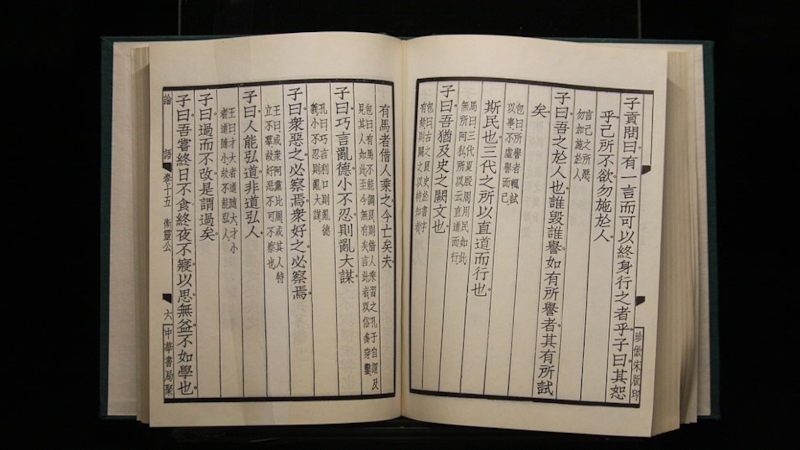 珍倣宋版印
子貢問曰有一言而可以終身行之者乎子曰其恕
乎己所不欲勿施於人
言己之所惡
勿加施於人
子曰吾之於人也誰毀誰譽如有所譽者其有所試
矣
包曰所譽者輒試
以事不虛譽而已
斯民也三代之所以直道而行也
馬曰三代夏殷周用民如此
無所阿私所以云直道而行
子曰吾猶及史之闕文也
包曰古之良史於書字
有疑則闕之以待知者
有馬者借人乘之今亡矣夫
包曰有馬不能調良則借人乘習之孔子自謂及
見其人如此至今無有矣言此者以俗多穿鑿
子曰巧言亂德小不忍則亂大謀
孔曰巧言利口則亂德
義小不忍則亂大謀
子曰衆惡之必察焉衆好之必察焉
王曰或衆阿黨比周或其人特
立不羣故好惡不可不察也
子曰人能弘道非道弘人
王曰才大者道隨大才小
者道隨小故不能弘人
子曰過而不改是謂過矣
子曰吾嘗終日不食終夜不寢以思無益不如學也
論語 卷十五 衛靈公 六 中華書局聚